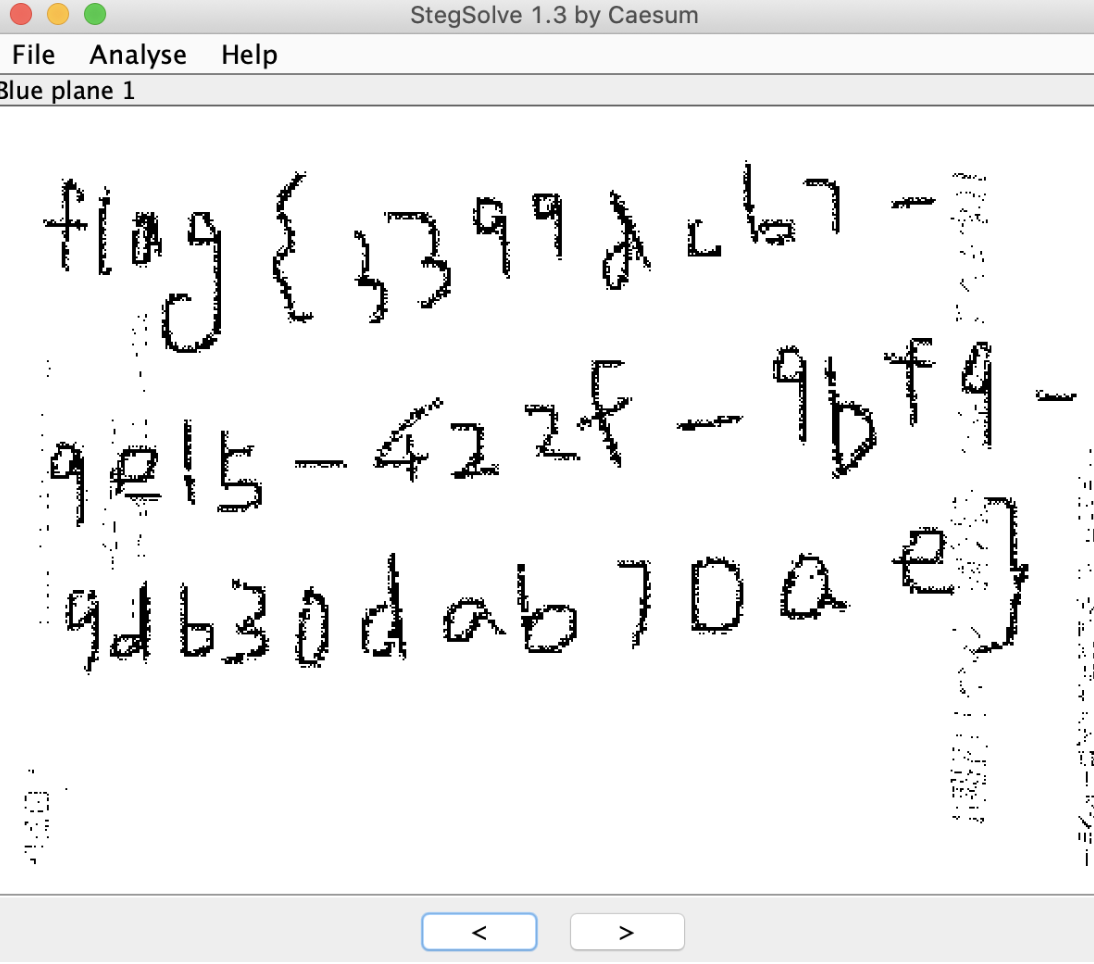 StegSolve 1.3 by Caesum
File Analyse Help
Blue plane 1
flag{3399dcb7-
9e15-422f-9bf9-
9db30dab70ae}
< >